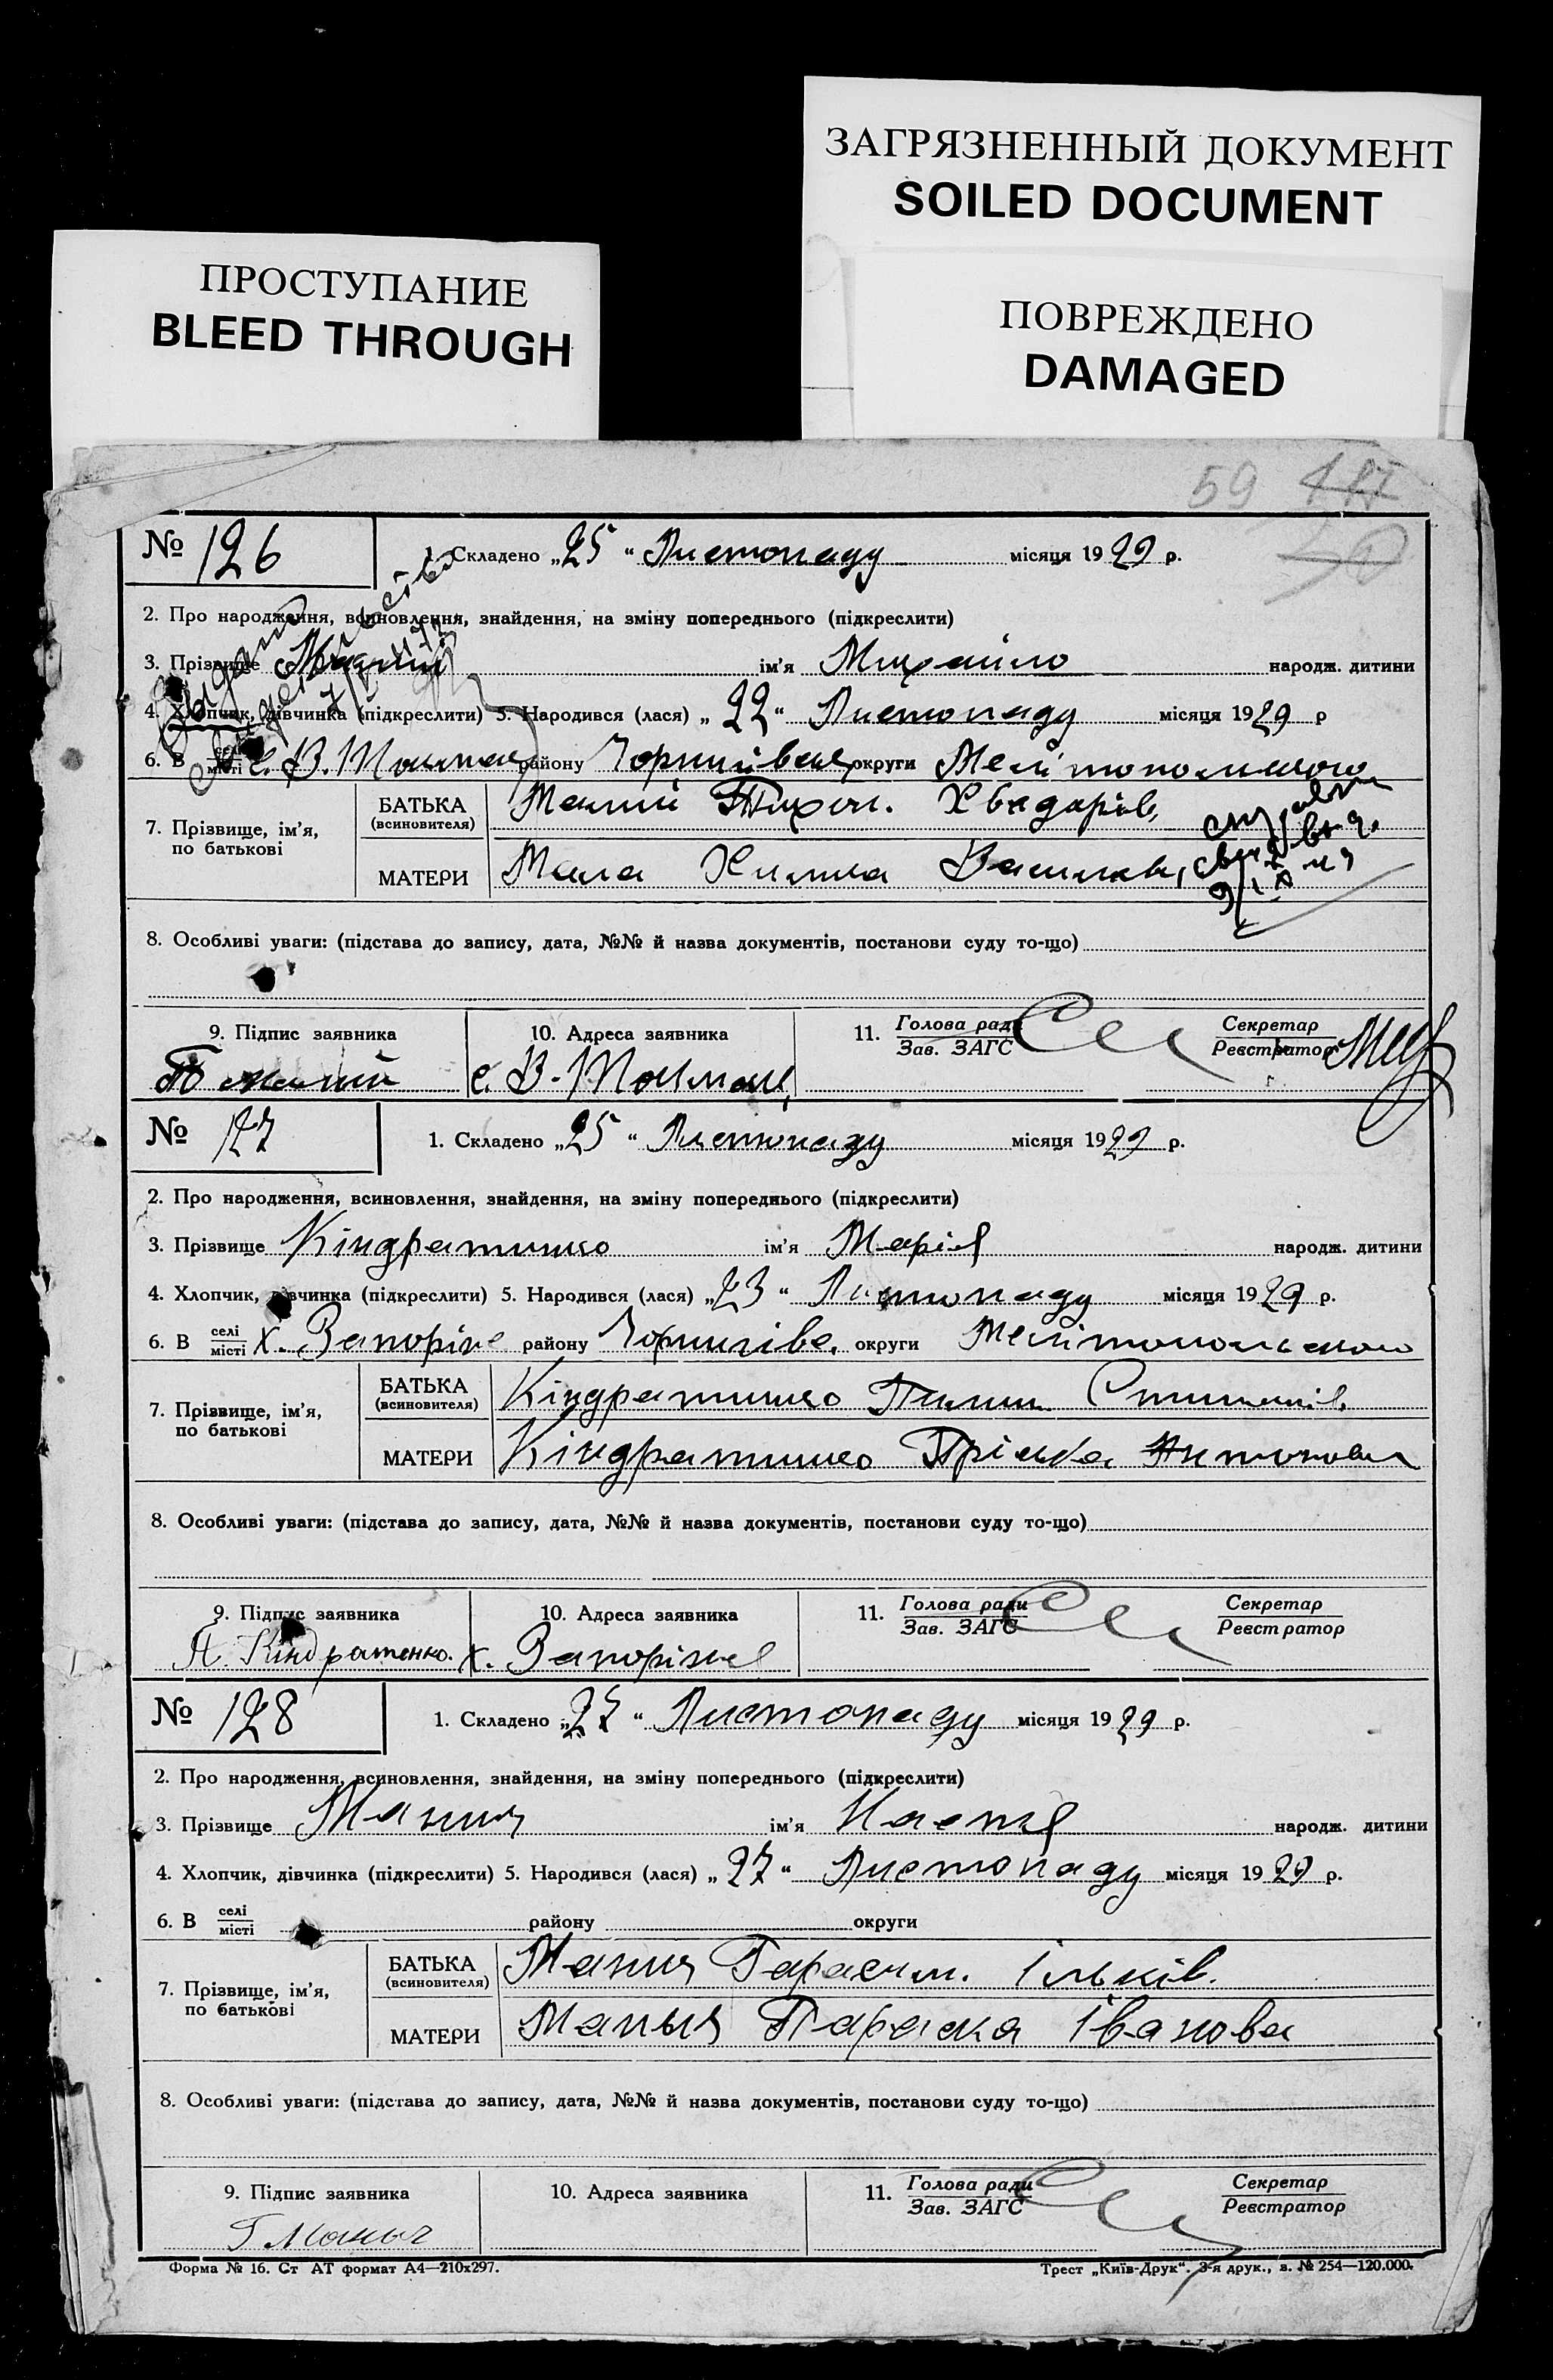 ЗАГРЯЗНЕННЫЙ ДОКУМЕНТ
SOILED DOCUMENT
ПРОСТУПАНИЕ
BLEED THROUGH
ПОВРЕЖДЕНО
DAMAGED
59
№ 126 1. Складено „25“ Листопаду місяця 1929 р.
2. Про народження, всиновлення, знайдення, на зміну попереднього (підкреслити)
3. Прізвище Малий ім'я Михайло народж. дитини
4. Хлопчик, дівчинка (підкреслити) 5. Народився (лася) „22“ Листопаду місяця 1929 р
6. В селі/місті с. В. Токмак району Чернигівськ округи Мелітопольського
7. Прізвище, ім'я, по батькові
БАТЬКА (всиновителя) Малий Тихон. Хведорів,
МАТЕРИ Мала Килина Васильів,
8. Особливі уваги: (підстава до запису, дата, №№ й назва документів, постанови суду то-що)
9. Підпис заявника 10. Адреса заявника 11. Голова ради/Зав. ЗАГС Секретар/Реєстратор
Т Малий с. В-Токмак,
№ 127 1. Складено „25“ Листопаду місяця 1929 р.
2. Про народження, всиновлення, знайдення, на зміну попереднього (підкреслити)
3. Прізвище Кіндратинко ім'я Марія народж. дитини
4. Хлопчик, дівчинка (підкреслити) 5. Народився (лася) „23“ Листопаду місяця 1929 р.
6. В селі/місті х. Запоріже району Чернигівс. округи Мелітопольського
7. Прізвище, ім'я, по батькові
БАТЬКА (всиновителя) Кіндратинко Пилип
МАТЕРИ Кіндратинко Пріська Антонова
8. Особливі уваги: (підстава до запису, дата, №№ й назва документів, постанови суду то-що)
9. Підпис заявника 10. Адреса заявника 11. Голова ради/Зав. ЗАГС Секретар/Реєстратор
П. Кіндратенко. х. Запоріже
№ 128 1. Складено „27“ Листопаду місяця 1929 р.
2. Про народження, всиновлення, знайдення, на зміну попереднього (підкреслити)
3. Прізвище Манич ім'я Настя народж. дитини
4. Хлопчик, дівчинка (підкреслити) 5. Народився (лася) „27“ Листопаду місяця 1929 р.
6. В селі/місті району округи
7. Прізвище, ім'я, по батькові
БАТЬКА (всиновителя) Манич Гарасим. Ільків.
МАТЕРИ Маныч Параска Іванова
8. Особливі уваги: (підстава до запису, дата, №№ й назва документів, постанови суду то-що)
9. Підпис заявника 10. Адреса заявника 11. Голова ради/Зав. ЗАГС Секретар/Реєстратор
Г Маныч
Форма № 16. Ст АТ формат А4—210x297. Трест „Київ-Друк“. 3-я друк., з. № 254—120.000.